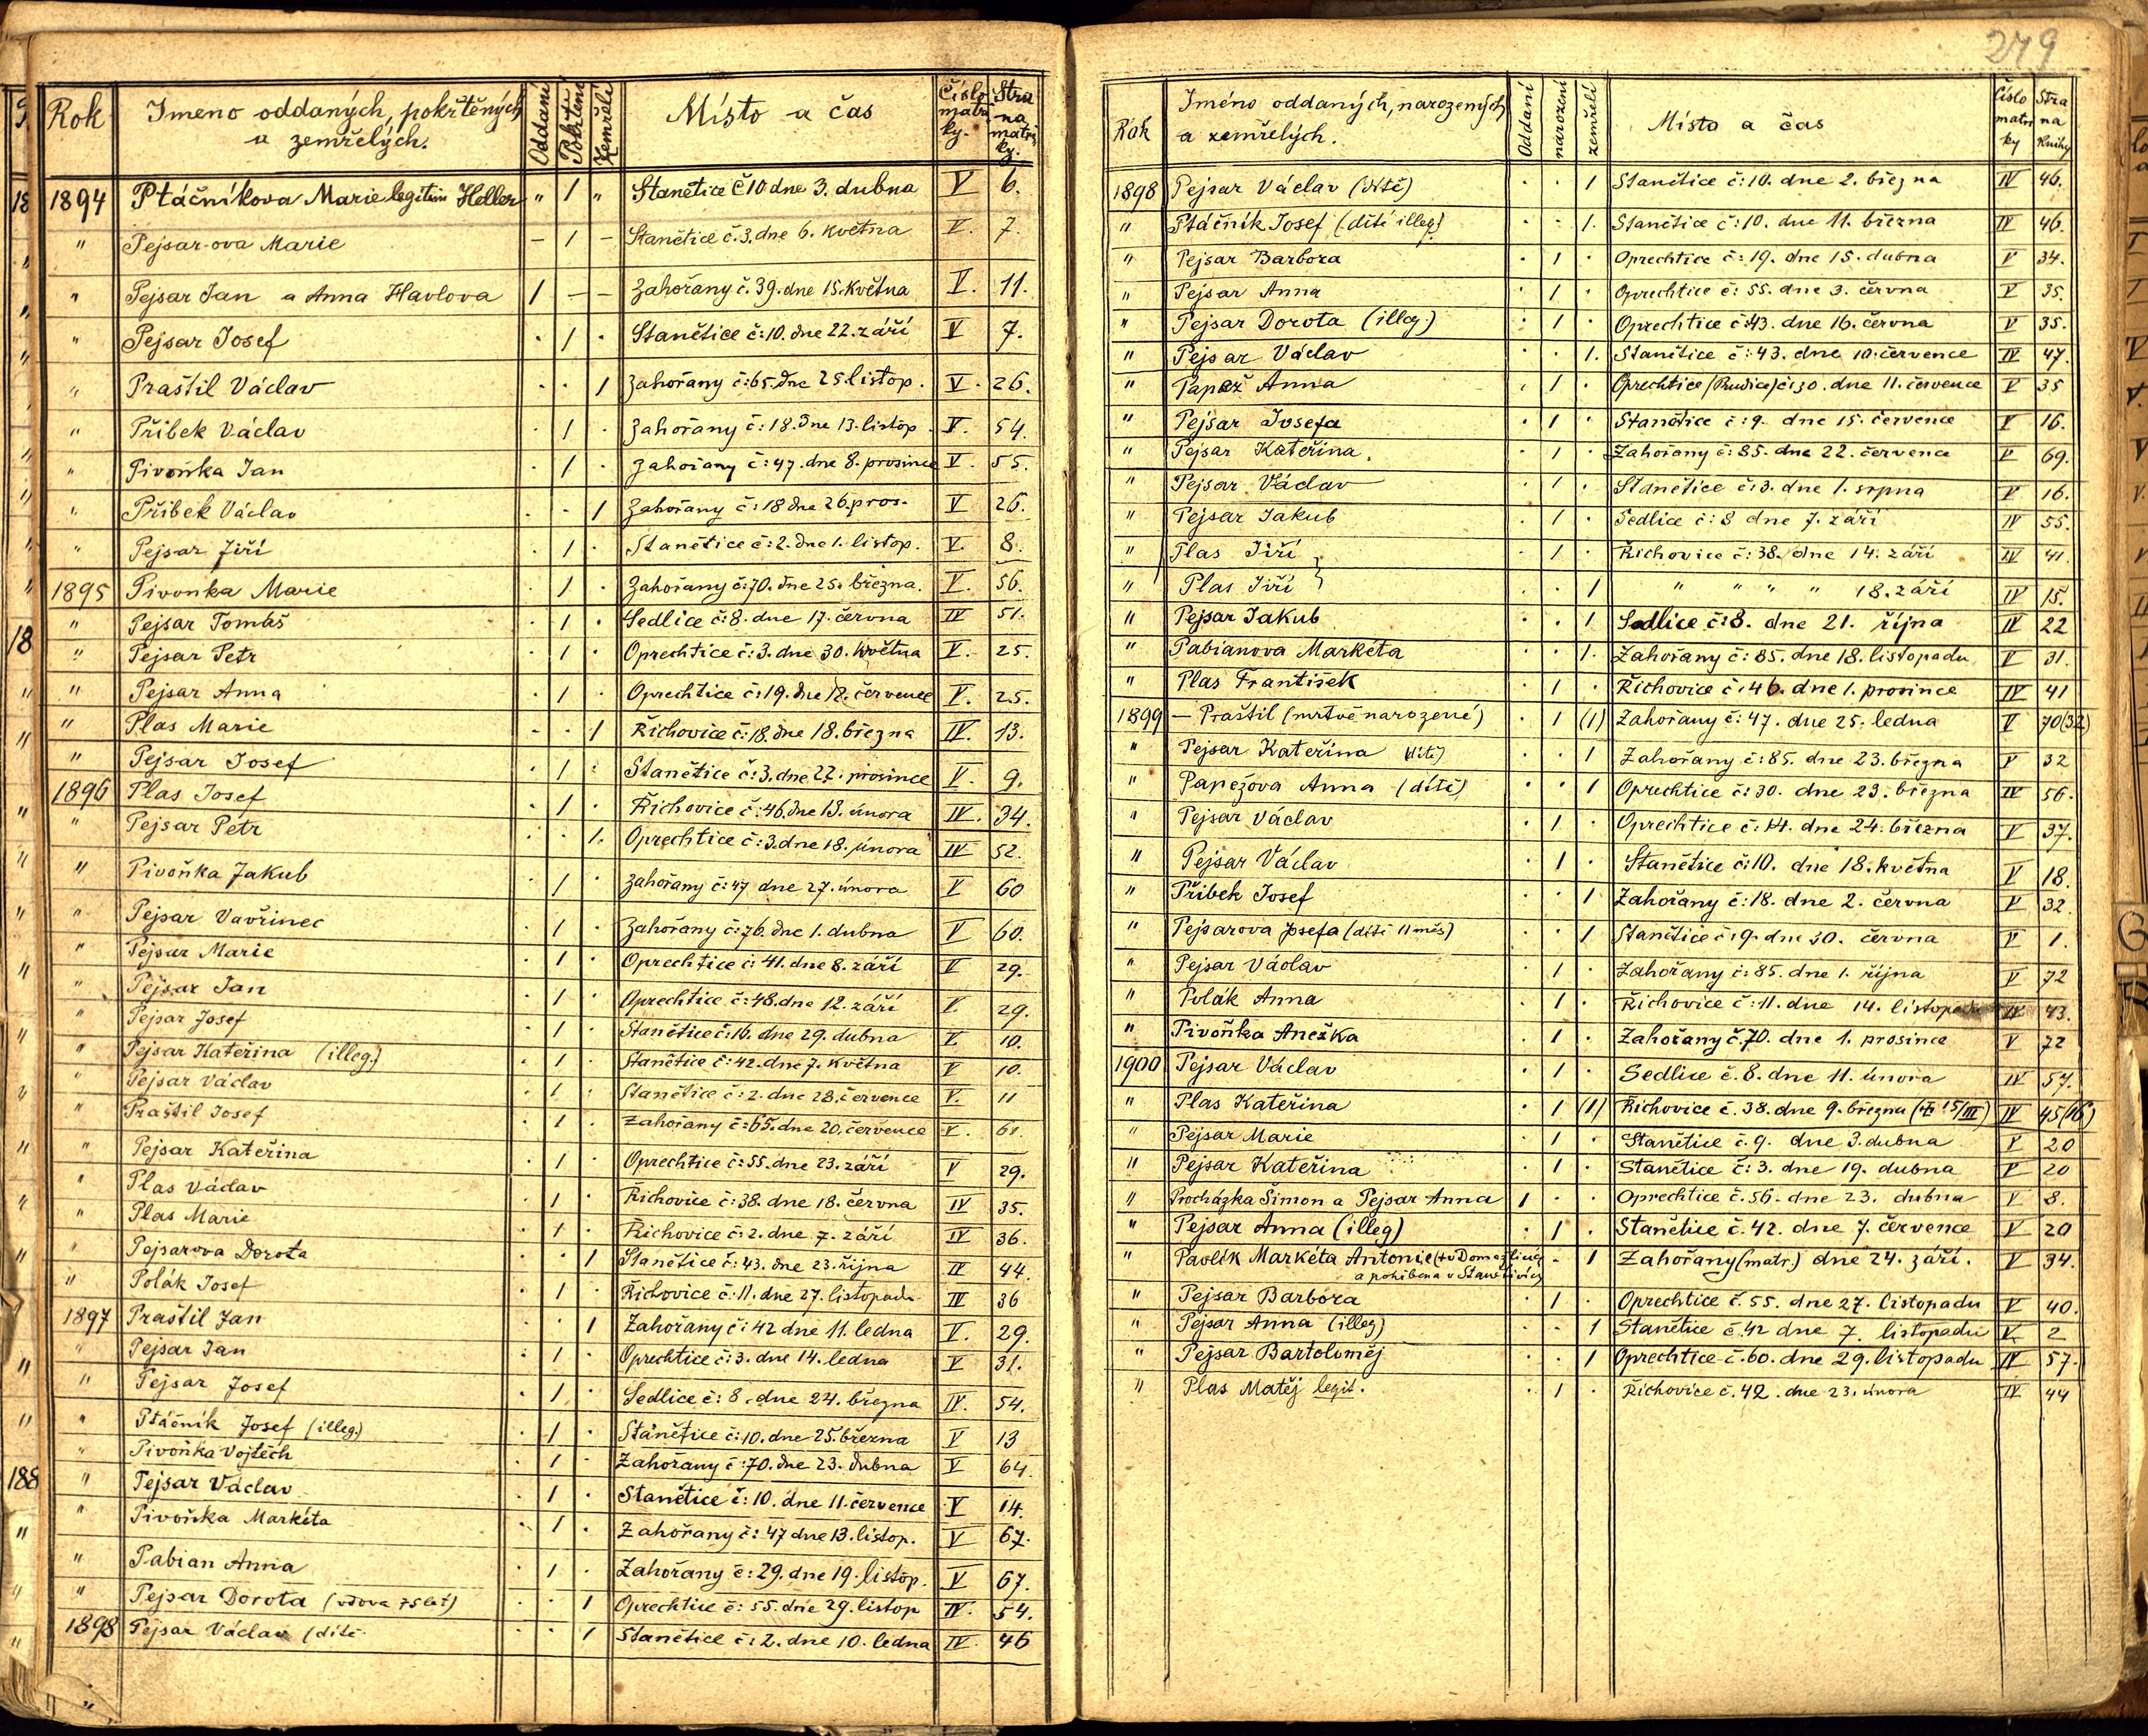 279
Rok Jmeno oddaných, pokřtěných a zemřelých. Oddaní Pokřtění Zemřelí Místo a čas Číslo matriky. Strana matriky.
1894 Ptáčníkova Marie legitim Heller " 1 " Stanětice č 10 dne 3. dubna V 6.
" Pejsar-ova Marie – 1 – Stanětice č. 3. dne 6. května V. 7.
" Pejsar Jan a Anna Havlova 1 – – Zahořany č. 39. dne 15. května V. 11.
" Pejsar Josef . 1 . Stanětice č: 10. dne 22. září V 7.
" Praštil Václav . . 1 Zahořany č: 65. dne 25. listop. V. 26.
" Přibek Václav . 1 . Zahořany č: 18. dne 13. listop. V. 54.
" Pivoňka Jan . 1 . Zahořany č: 47. dne 8. prosince V. 55.
" Přibek Václav . . 1 Zahořany č: 18 dne 26. pros. V 26.
" Pejsar Jiří . 1 . Stanětice č: 2. dne 1. listop. V. 8.
1895 Pivonka Marie . 1 . Zahořany č: 70. dne 25. března. V. 56.
" Pejsar Tomáš . 1 . Sedlice č: 8. dne 17. června IV 51.
" Pejsar Petr . 1 . Oprechtice č: 3. dne 30. května V. 25.
" Pejsar Anna . 1 . Oprechtice č: 19. dne 12. července V. 25.
" Plas Marie . . 1 Řichovice č: 18. dne 18. března IV. 13.
" Pejsar Josef . 1 . Stanětice č: 3. dne 22. prosince V. 9.
1896 Plas Josef . 1 . Řichovice č: 46. dne 13. února IV. 34.
" Pejsar Petr . . 1. Oprechtice č: 3. dne 18. února IV 52.
" Pivoňka Jakub . 1 . Zahořany č: 47 dne 27. února V 60
" Pejsar Vavřinec . 1 . Zahořany č: 76. dne 1. dubna V 60.
" Pejsar Marie . 1 . Oprechtice č: 41. dne 8. září V 29.
" Pejsar Jan . 1 . Oprechtice č: 48. dne 12. září V. 29.
" Pejsar Josef . 1 . Stanětice č: 16. dne 29. dubna V. 10.
" Pejsar Kateřina (illeg.) . 1 . Stanětice č: 42. dne 7. května V 10.
" Pejsar Václav . 1 . Stanětice č: 2. dne 28. července V. 11
" Praštil Josef . 1 . Zahořany č: 65. dne 20. července V. 61.
" Pejsar Kateřina . 1 . Oprechtice č: 55. dne 23. září V 29.
" Plas Václav . 1 . Řichovice č: 38. dne 18. června IV 35.
" Plas Marie . 1 . Řichovice č: 2. dne 7. září IV 36.
" Pejsarova Dorota . . 1 Stanětice č: 43. dne 23. října IV 44.
" Polák Josef . 1 . Řichovice č: 11. dne 27. listopadu IV 36
1897 Praštil Jan . . 1 Zahořany č: 42 dne 11. ledna V. 29.
" Pejsar Jan . 1 . Oprechtice č: 3. dne 14. ledna V 31.
" Pejsar Josef . 1 . Sedlice č: 8. dne 24. března IV. 54.
" Ptáčník Josef (illeg.) . 1 . Stanětice č: 10. dne 25. března V 13
" Pivoňka Vojtěch . 1 . Zahořany č: 70. dne 23. dubna V 64.
" Pejsar Václav . 1 . Stanětice č: 10. dne 11. července V 14.
" Pivoňka Markéta . 1 . Zahořany č: 47 dne 13. listop. V 67.
" Pabian Anna . 1 . Zahořany č: 29. dne 19. listop. V 67.
" Pejsar Dorota (vdova 75 let) . . 1 Oprechtice č: 55. dne 29. listop IV. 54.
1898 Pejsar Václav (dítě . . 1 Stanětice č: 2. dne 10. ledna IV. 46
Rok Jméno oddaných, narozených a zemřelých. Oddaní narození zemřelí Místo a čas Číslo matriky Strana knihy
1898 Pejsar Václav (dítě) . . 1 Stanětice č: 10. dne 2. března IV 46.
" Ptáčník Josef (dítě illeg.) . . 1. Stanětice č: 10. dne 11. března IV 46.
" Pejsar Barbora . 1 . Oprechtice č: 19. dne 15. dubna V 34.
" Pejsar Anna . 1 . Oprechtice č: 55. dne 3. června V 35.
" Pejsar Dorota (illeg.) . 1 . Oprechtice č: 43. dne 16. června V 35.
" Pejsar Václav . . 1. Stanětice č: 43. dne 10. července IV 47.
" Papež Anna . 1 . Oprechtice (Rudice) č: 30. dne 11. července V 35
" Pejsar Josefa . 1 . Stanětice č: 9. dne 15. července V 16.
" Pejsar Kateřina. . 1 . Zahořany č: 85. dne 22. července V 69.
" Pejsar Václav . 1 . Stanětice č: 3. dne 1. srpna V 16.
" Pejsar Jakub . 1 . Sedlice č: 8 dne 7. září IV 55.
" Plas Jiří . 1 . Řichovice č: 38. dne 14. září IV 41.
" Plas Jiří . . 1 " " " " 18. září IV 15.
" Pejsar Jakub . . 1 Sedlice č: 8. dne 21. října IV 22
" Pabianova Markéta . . 1. Zahořany č: 85. dne 18. listopadu V 31.
" Plas František . 1 . Řichovice č: 46. dne 1. prosince IV 41
1899 – Praštil (mrtvě narozené) . 1 (1) Zahořany č: 47. dne 25. ledna V 70(32)
" Pejsar Kateřina (dítě) . . 1 Zahořany č: 85. dne 23. března V 32
" Papežova Anna (dítě) . . 1 Oprechtice č: 30. dne 23. března IV 56.
" Pejsar Václav . 1 . Oprechtice č: 14. dne 24. března V 37.
" Pejsar Václav . 1 . Stanětice č: 10. dne 18. května V 18.
" Přibek Josef . . 1 Zahořany č: 18. dne 2. června V 32.
" Pejsarova Josefa (dítě 11 měs) . . 1 Stanětice č: 9. dne 30. června V 1.
" Pejsar Václav . 1 . Zahořany č: 85. dne 1. října V 72
" Polák Anna . 1 . Řichovice č: 11. dne 14. listopadu IV 43.
" Pivoňka Anežka . 1 . Zahořany č. 70. dne 1. prosince V 72
1900 Pejsar Václav . 1 . Sedlice č. 8. dne 11. února IV 57.
" Plas Kateřina . 1 (1) Řichovice č. 38. dne 9. března († 15/III) IV 45(16)
" Pejsar Marie . 1 . Stanětice č. 9. dne 3. dubna V 20
" Pejsar Kateřina . 1 . Stanětice č: 3. dne 19. dubna V 20
" Procházka Šimon a Pejsar Anna 1 . . Oprechtice č. 56. dne 23. dubna V 8.
" Pejsar Anna (illeg) . 1 . Stanětice č. 42. dne 7. července V 20
" Pavlík Markéta Antonie († v Domažlicích - 1 Zahořany (matr.) dne 24. září. V 34.
a pohřbena v Stanětících
" Pejsar Barbora . 1 . Oprechtice č. 55. dne 27. listopadu V 40.
" Pejsar Anna (illeg) . . 1 Stanětice č. 42 dne 7. listopadu V. 2
" Pejsar Bartoloměj . . 1 Oprechtice č. 60. dne 29. listopadu IV 57.
" Plas Matěj legit. . 1 . Řichovice č. 42. dne 23. února IV 44